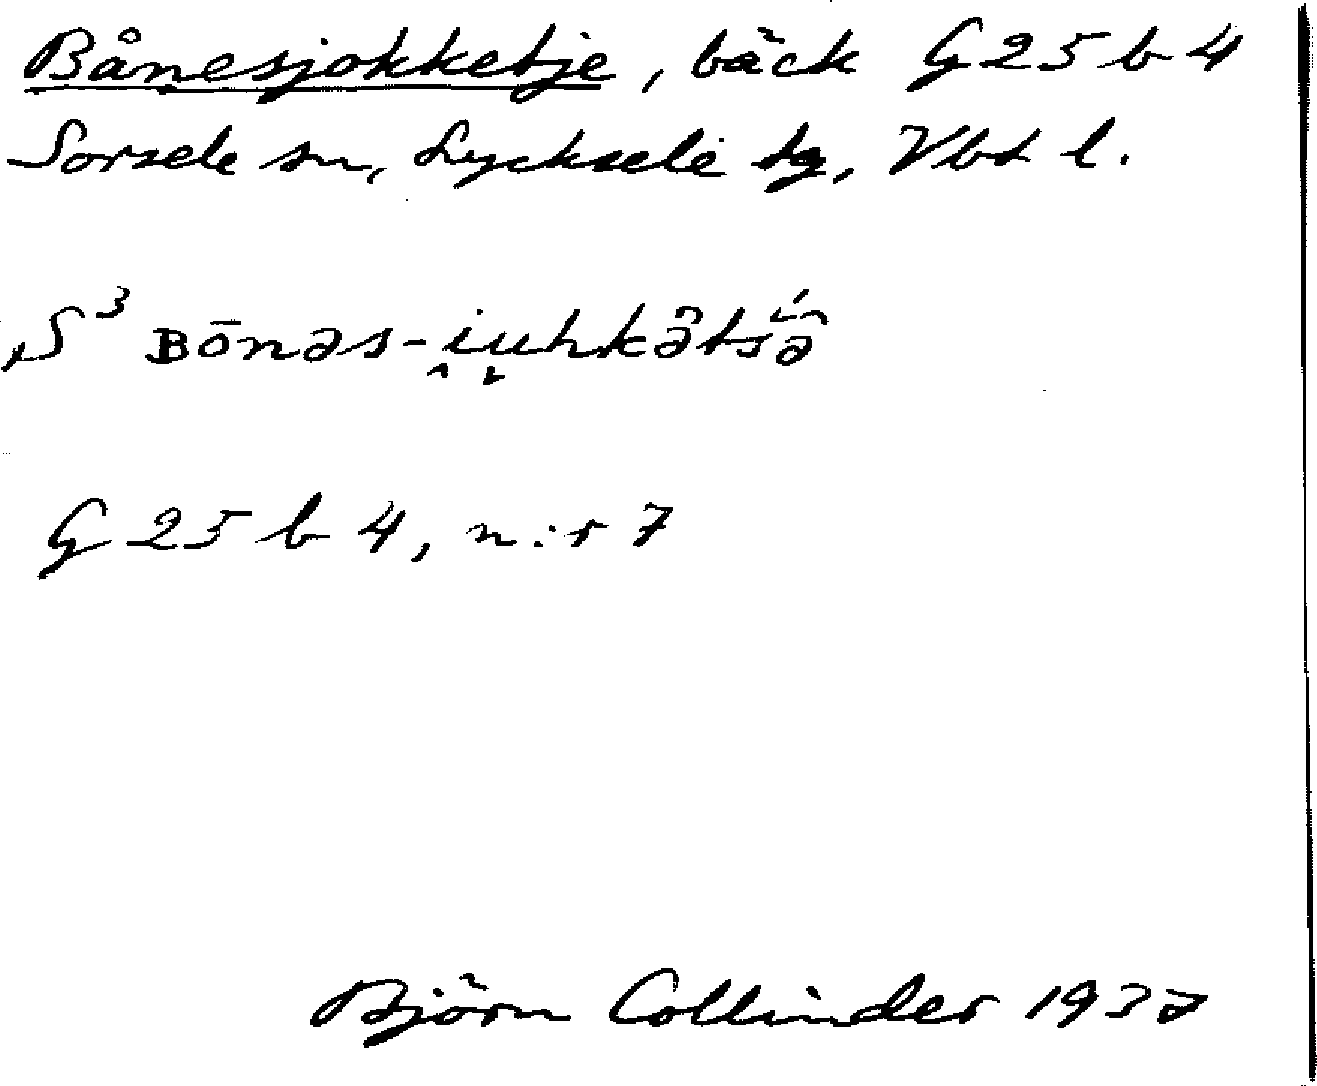 Bånesjokketje, bäck G 25 b 4
Sorsele sn, Lycksele tg, Vbt l.
S³ ʙōnəs-i̭u̬hkə̑tsə̑́
G 25 b 4, n:r 7
Björn Collinder 1937